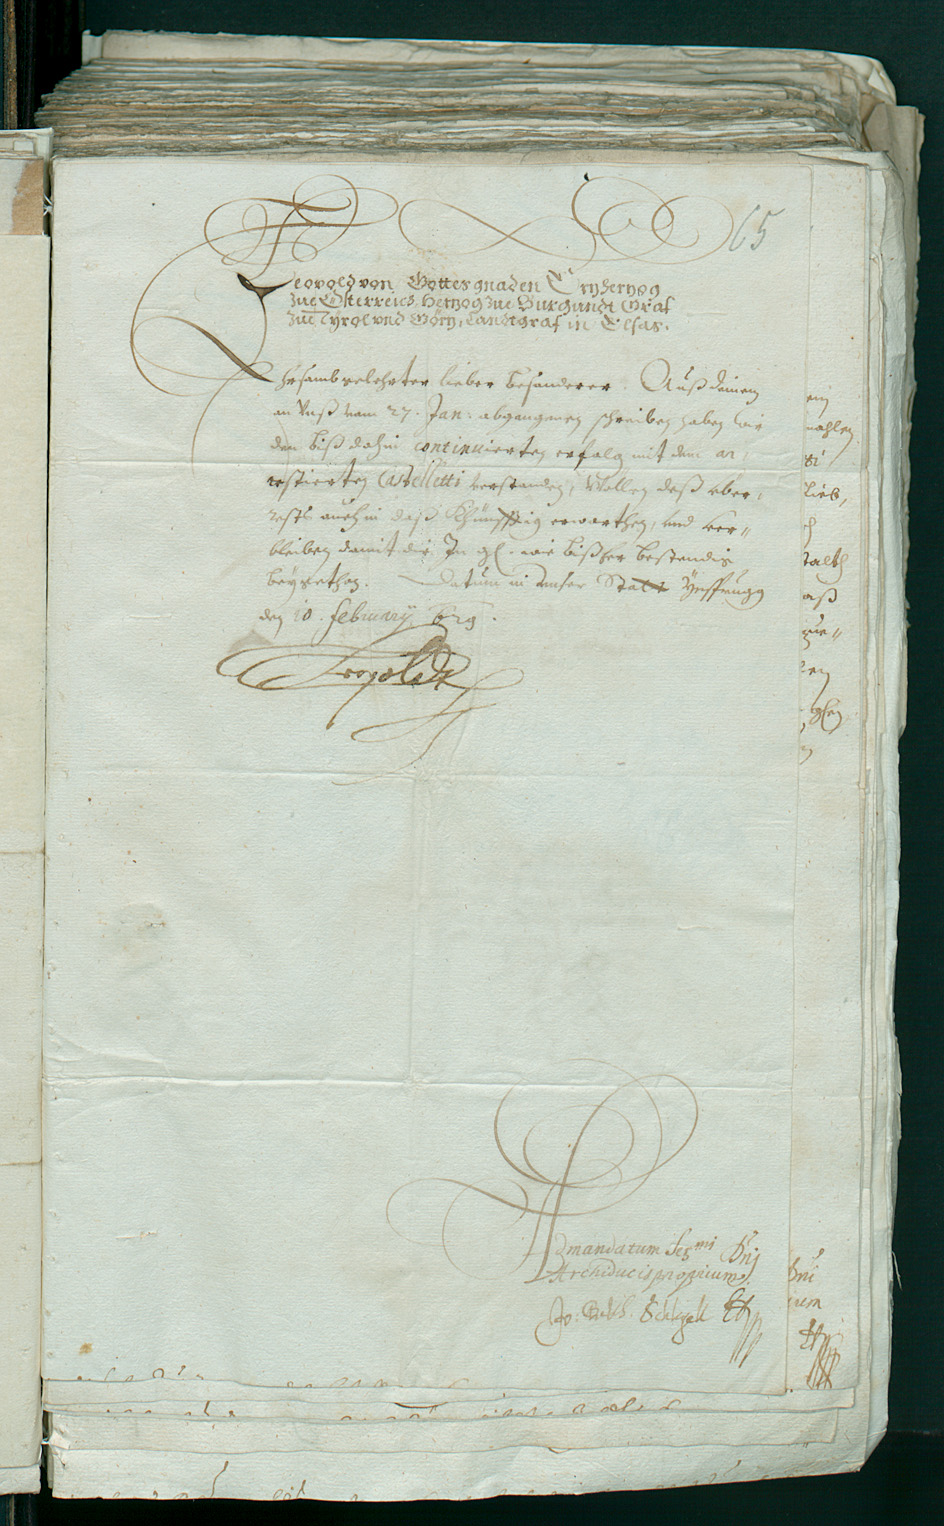 65
Leopold von Gottes gnaden Ertzhertzog
zue Österreich, Hertzog zue Burgundt Graf
zue Tyrol vnd Görtz, Landtgraf in Elsas.
Ehrsamb gelehrter lieber besonderer. Auß deinem
an Vnß vom 27. Jan: abgangnen schreiben haben wir
den biß dahin continuierten erfolg mit dem ar„
restierten Castelletti verstanden, Wellen deß yber„
rests auch in daß khünfftig erwarthen, vnd ver„
bleiben damit dir In gl. wie bißher bestendig
beygethan. Datum in vnser Statt Ynsprugg
den 10. February 629.
Leopoldt
Ad mandatum Serᵐⁱ Dni
Archiducis proprium.
Jo:
ein
lieb,
aß
Dni
ium